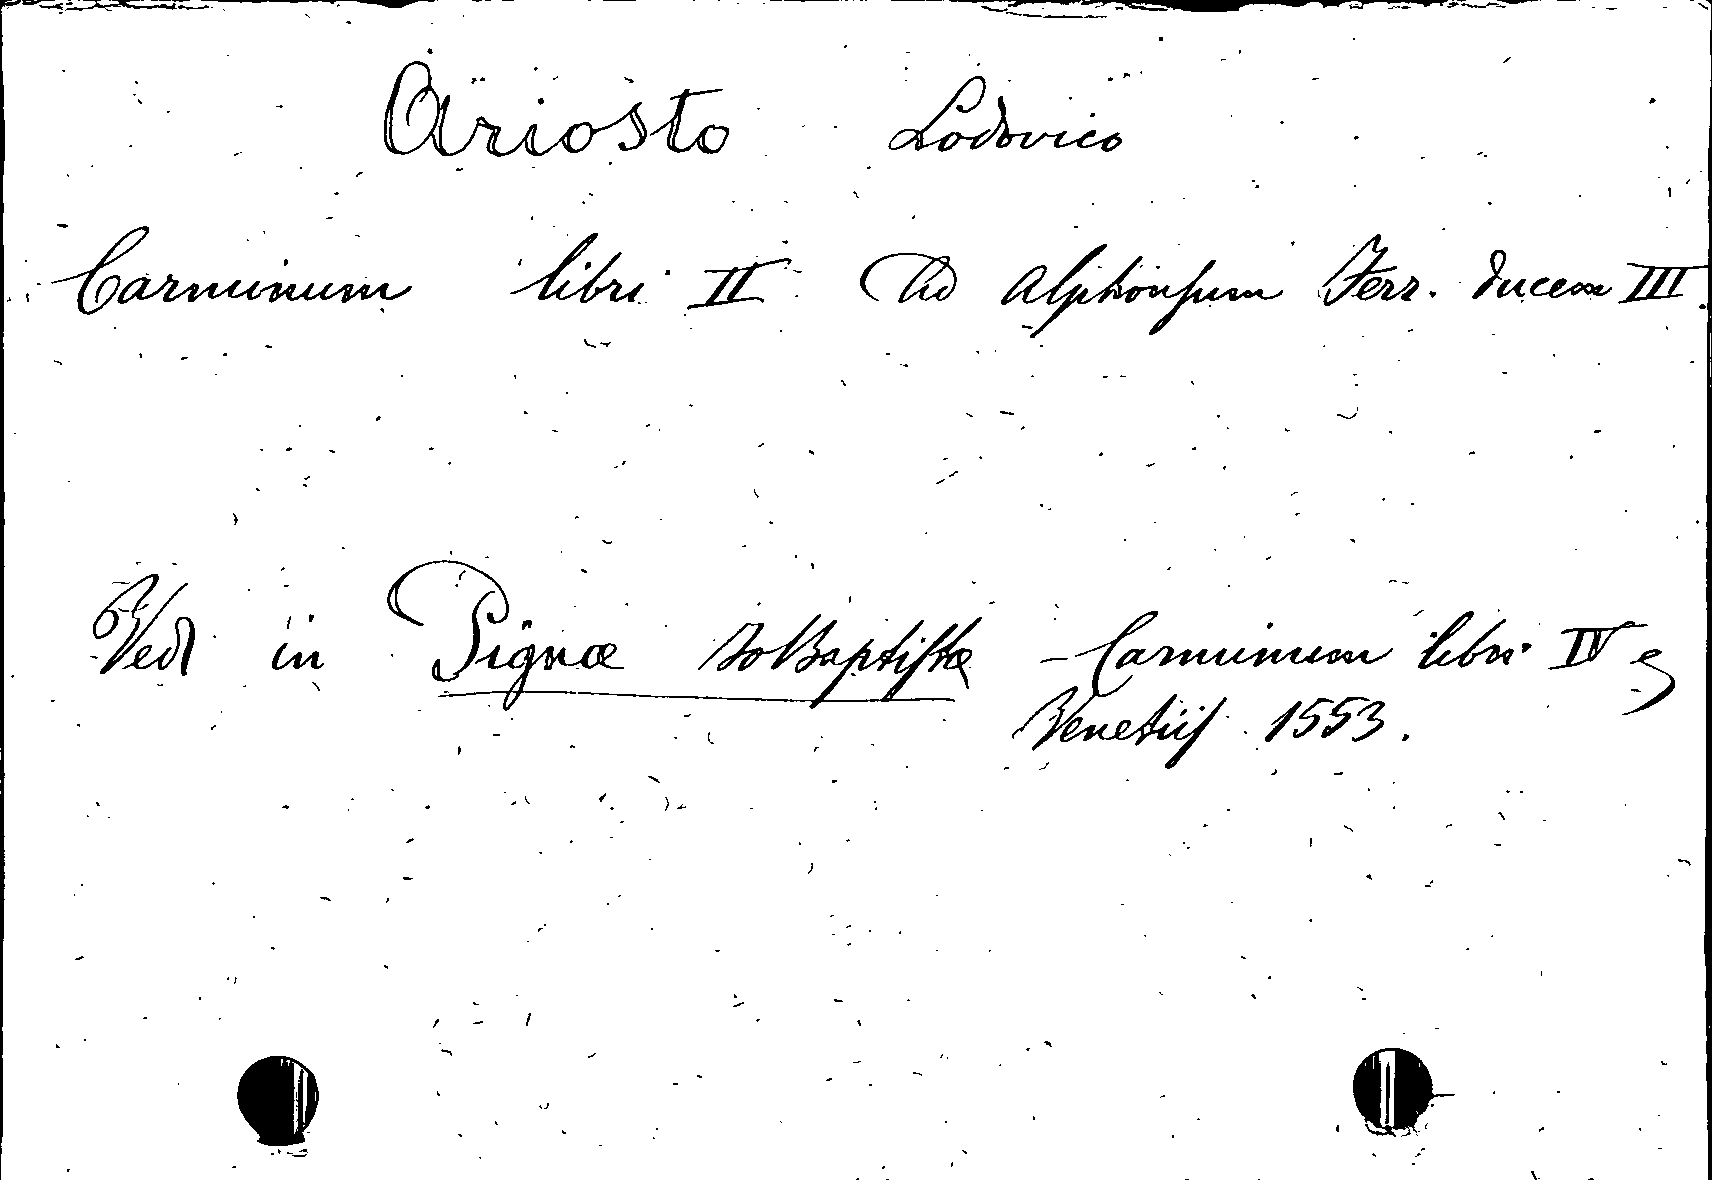 Ariosto Lodovico
Carminum libri II Ad Alphonsum Ferr. ducem III.
Vedi in Pignæ Io Baptistæ - Carminum libri IV
Venetiis 1553.